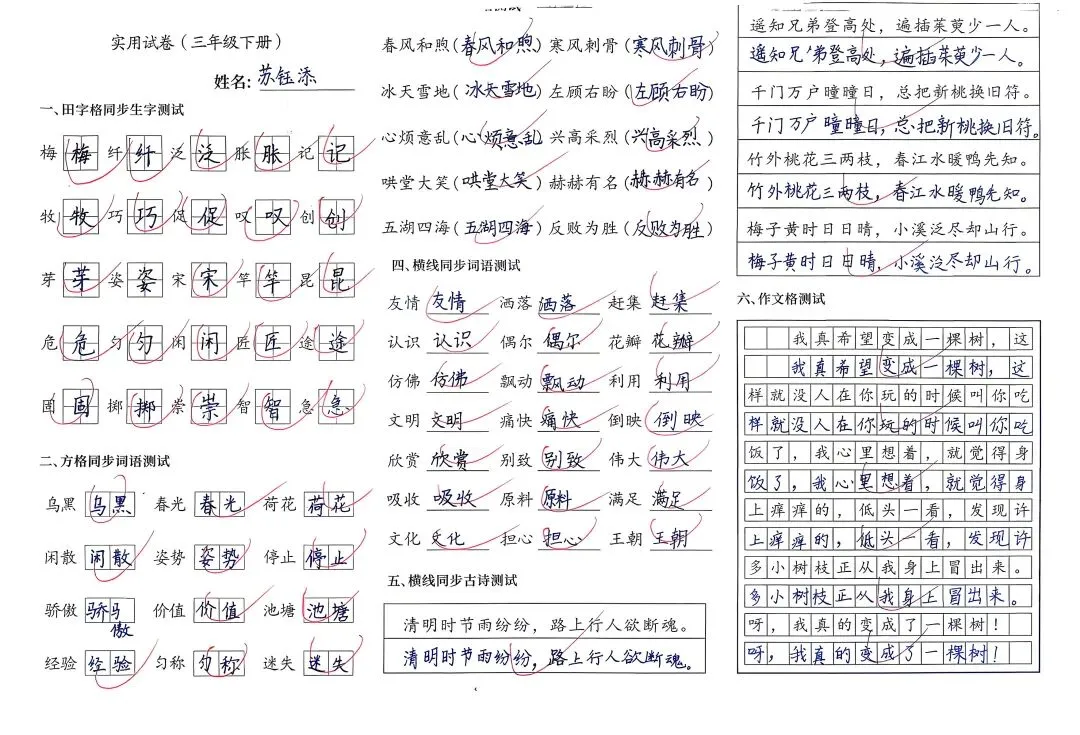 实用试卷（三年级下册）
姓名：苏钰添
一、田字格同步生字测试
梅 梅 纤 纤 泛 泛 胀 胀 记 记
牧 牧 巧 巧 促 促 叹 叹 创 创
芽 芽 姿 姿 宋 宋 竿 竿 昆 昆
危 危 匀 匀 闲 闲 匠 匠 途 途
固 固 掷 掷 崇 崇 智 智 急 急
二、方格同步词语测试
乌黑 乌黑 春光 春光 荷花 荷花
闲散 闲散 姿势 姿势 停止 停止
骄傲 骄马傲 价值 价值 池塘 池塘
经验 经验 匀称 匀称 迷失 迷失
春风和煦（春风和煦）寒风刺骨（寒风刺骨）
冰天雪地（冰天雪地）左顾右盼（左顾右盼）
心烦意乱（心烦意乱）兴高采烈（兴高采烈）
哄堂大笑（哄堂大笑）赫赫有名（赫赫有名）
五湖四海（五湖四海）反败为胜（反败为胜）
四、横线同步词语测试
友情 友情 洒落 洒落 赶集 赶集
认识 认识 偶尔 偶尔 花瓣 花瓣
仿佛 仿佛 飘动 飘动 利用 利用
文明 文明 痛快 痛快 倒映 倒映
欣赏 欣赏 别致 别致 伟大 伟大
吸收 吸收 原料 原料 满足 满足
文化 文化 担心 担心 王朝 王朝
五、横线同步古诗测试
清明时节雨纷纷，路上行人欲断魂。
清明时节雨纷纷，路上行人欲断魂。
遥知兄弟登高处，遍插茱萸少一人。
遥知兄弟登高处，遍插茱萸少一人。
千门万户曈曈日，总把新桃换旧符。
千门万户曈曈日，总把新桃换旧符。
竹外桃花三两枝，春江水暖鸭先知。
竹外桃花三两枝，春江水暖鸭先知。
梅子黄时日日晴，小溪泛尽却山行。
梅子黄时日日晴，小溪泛尽却山行。
六、作文格测试
我真希望变成一棵树，这
我真希望变成一棵树，这
样就没人在你玩的时候叫你吃
样就没人在你玩的时候叫你吃
饭了，我心里想着，就觉得身
饭了，我心里想着，就觉得身
上痒痒的，低头一看，发现许
上痒痒的，低头一看，发现许
多小树枝正从我身上冒出来。
多小树枝正从我身上冒出来。
呀，我真的变成了一棵树！
呀，我真的变成了一棵树！